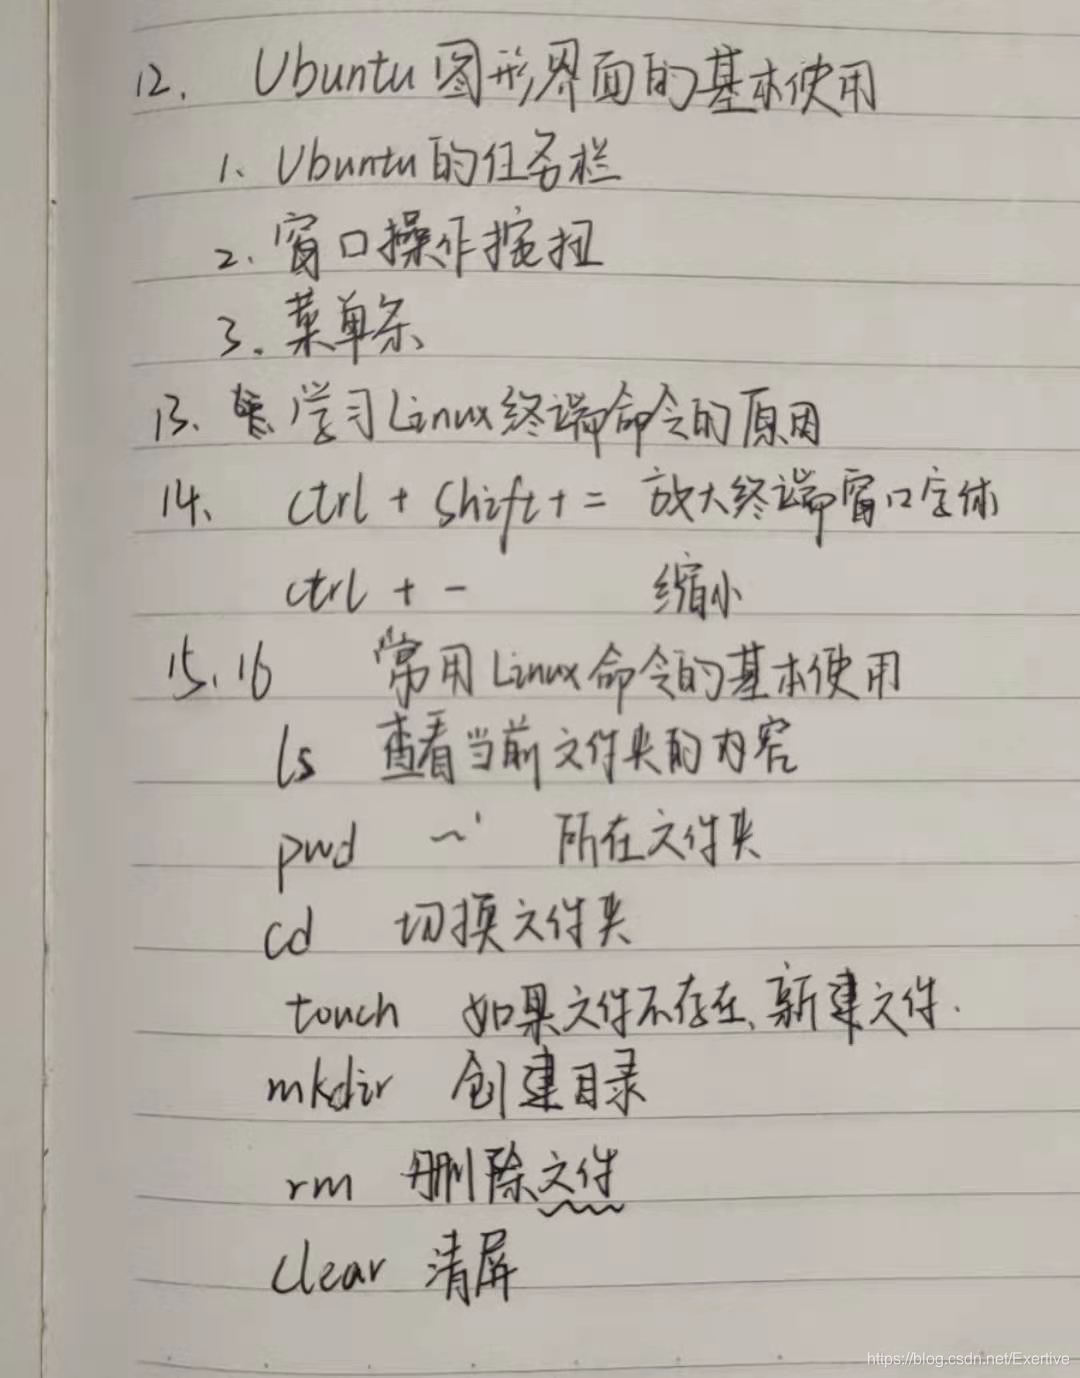 12. Ubuntu图形界面的基本使用
1、Ubuntu的任务栏
2.窗口操作按扭
3.菜单条
13、学习Linux终端命令的原因
14、ctrl + shift + = 放大终端窗口字体
ctrl + - 缩小
15、16 常用Linux命令的基本使用
ls 查看当前文件夹的内容
pwd 所在文件夹
cd 切换文件夹
touch 如果文件不存在、新建文件.
mkdir 创建目录
rm 删除文件
clear 清屏
https://blog.csdn.net/Exertive